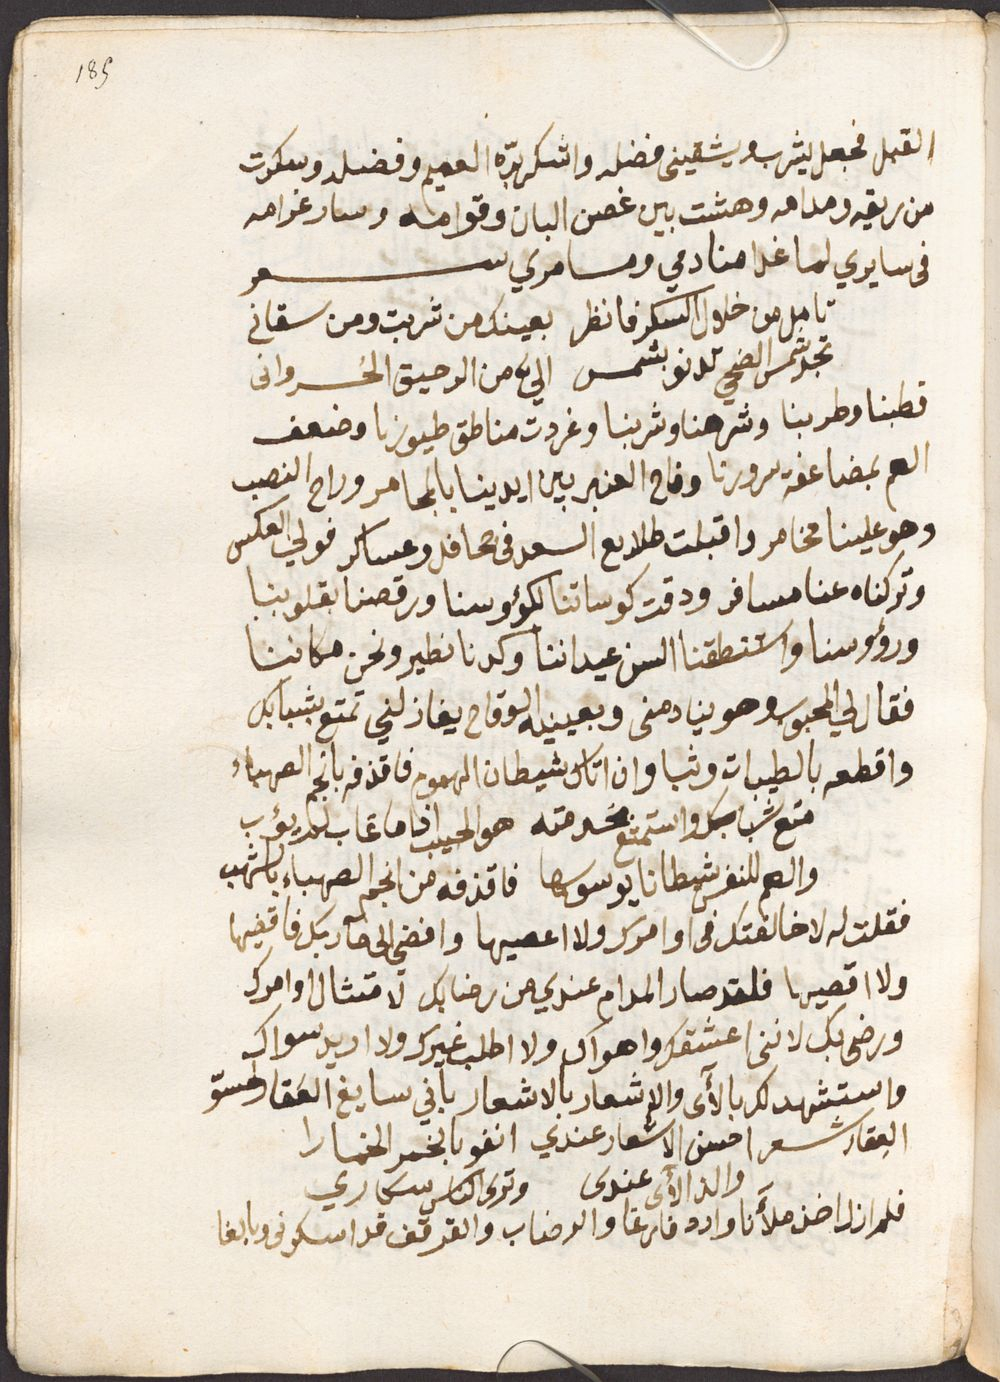 185
القبل فجعل يشرب ويسقيني فضله واشكر بره العميم وفضله وسكرت
من ريقه ومدامه وهمت بين غصن البان وقوامه وسار غرامه
في سايري لما غدا منادمي ومسامري شعر
تامل من خلال السكر فانظر بعينك من شربت ومن سقاني
تجد شمس الضحى تدنو بشمس الي من الرحيق الخسرواني
فطبنا وطربنا وشرهنا وشربنا وغردت مناطق طيورنا وضعف
الهم بمضاعفة سرورنا وفاح العنبر بين ايدينا بالمجامر وراح النصب
وهو علينا مخامر واقبلت طلايع السعد في محافل وعساكر فولى العكس
وتركناه عنا مسافر ودقت كوساتنا لكؤوسنا ورقصنا بقلوبنا
ورؤوسنا واستنطقنا السن عيداننا وكدنا نطير ونحن مكاننا
فقال لي المحبوب وهو ينادمني وبعينيه الوقاح يغازلني تمتع بشبابك
واقطعه بالطيبات وثبا وان اتاك شيطان الهموم فاقذفه بانجم الصهباء
متع شبابك واستمتع بخدمته هو الحبيب اذا ما غاب لم يؤب
والهم للنفس شيطانا يوسوسها فاقذفه من انجم الصهباء بالشهب
فقلت له لا خالفتك في اوامرك ولا اعصيها وافضي الى مآربك فاقضيها
ولا اقصيها فلقد صار المدام عندي من رضابك لامتثال اوامرك
ورضى بك لانني اعشقك واهواك ولا اطلب غيرك ولا اريد سواك
واستشهد لك بالآي والاشعار بالاشعار باني سايغ العقار لحسو
العقار شعر احسن الاشعار عندي انفو بالخمر الخمارا
والذ الآي عندي وترى الناس سكارى
فلم ازل اخذ ملآنا وارد فارغا والرضاب والقرقف قد اسكروني وبالغا